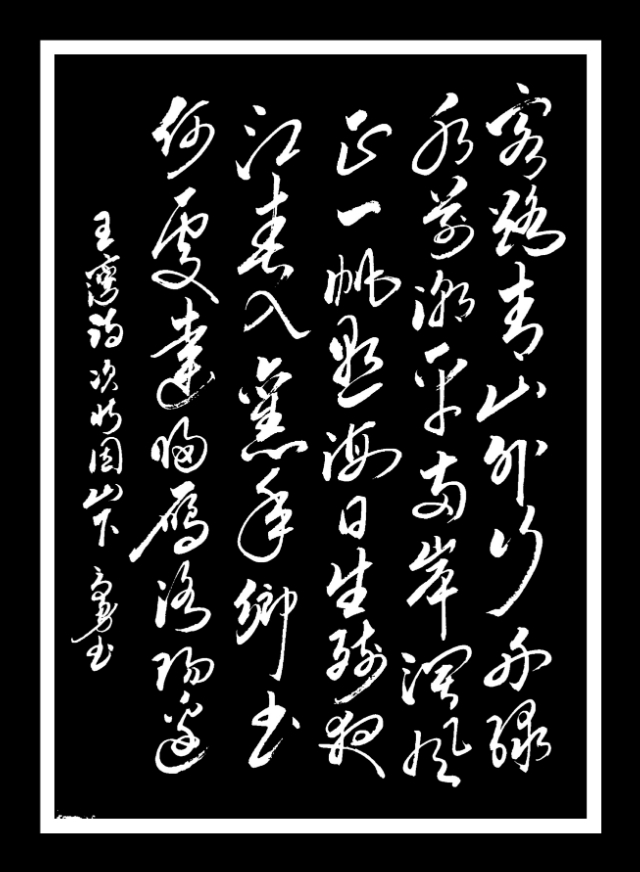 客路青山外行舟綠
水前潮平兩岸濶風
正一帆懸海日生殘夜
江春入舊年鄉書
何處達歸雁洛陽邊
王灣詩次北固山下 書